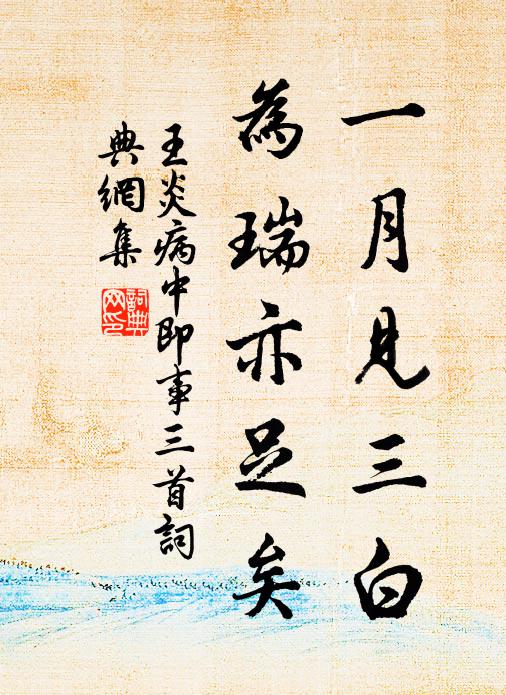 一月見三白
為瑞亦足矣
王炎病中即事三首詞
典網集
詞典
网印